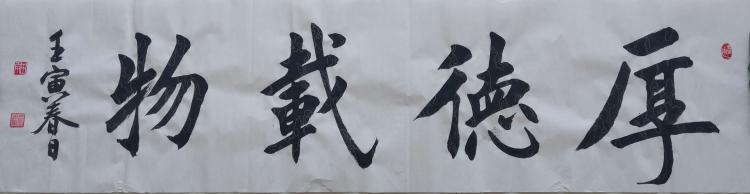 厚德載物
壬寅春日